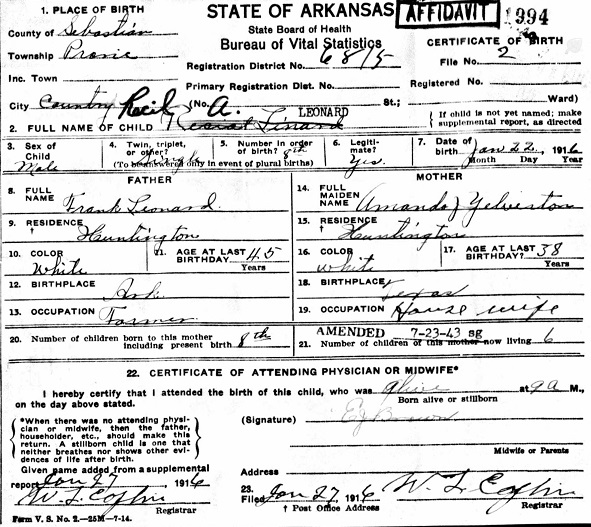 1. PLACE OF BIRTH
STATE OF ARKANSAS
AFFIDAVIT
1994
County of Sebastian
State Board of Health
Bureau of Vital Statistics
CERTIFICATE OF BIRTH
Township Prarie
Registration District No. 68/5
File No. 2
Inc. Town
Primary Registration Dist. No.
Registered No.
City Country
(No. A. St.; Ward)
LEONARD
2. FULL NAME OF CHILD Linard
{ If child is not yet named; make supplemental report, as directed
3. Sex of Child Male
4. Twin, triplet, or other? Single
5. Number in order of birth? 8th
(To be answered only in event of plural births)
6. Legitimate? Yes.
7. Date of birth Jan 22, 1916
Month Day Year
FATHER
MOTHER
8. FULL NAME Frank Leonard.
14. FULL MAIDEN NAME Amanda J Yelverton
9. RESIDENCE † Huntington
15. RESIDENCE † Huntington
10. COLOR White
11. AGE AT LAST BIRTHDAY? 45 Years
16. COLOR White
17. AGE AT LAST BIRTHDAY? 38 Years
12. BIRTHPLACE Ark.
18. BIRTHPLACE Texas
13. OCCUPATION Farmer
19. OCCUPATION House wife
AMENDED 7-23-43 sg
20. Number of children born to this mother including present birth 8th
21. Number of children of this mother now living 6
22. CERTIFICATE OF ATTENDING PHYSICIAN OR MIDWIFE*
I hereby certify that I attended the birth of this child, who was alive at 9 a M.,
Born alive or stillborn
on the day above stated.
{ *When there was no attending physician or midwife, then the father, householder, etc., should make this return. A stillborn child is one that neither breathes nor shows other evidences of life after birth. }
(Signature)
Midwife or Parents
Given name added from a supplemental
report Jan 27, 1916
Address
W. L. Coffin
Registrar
23. Filed Jan 27, 1916 W. L. Coffin
† Post Office Address Registrar
Form V. S. No. 2.—25M—7-14.